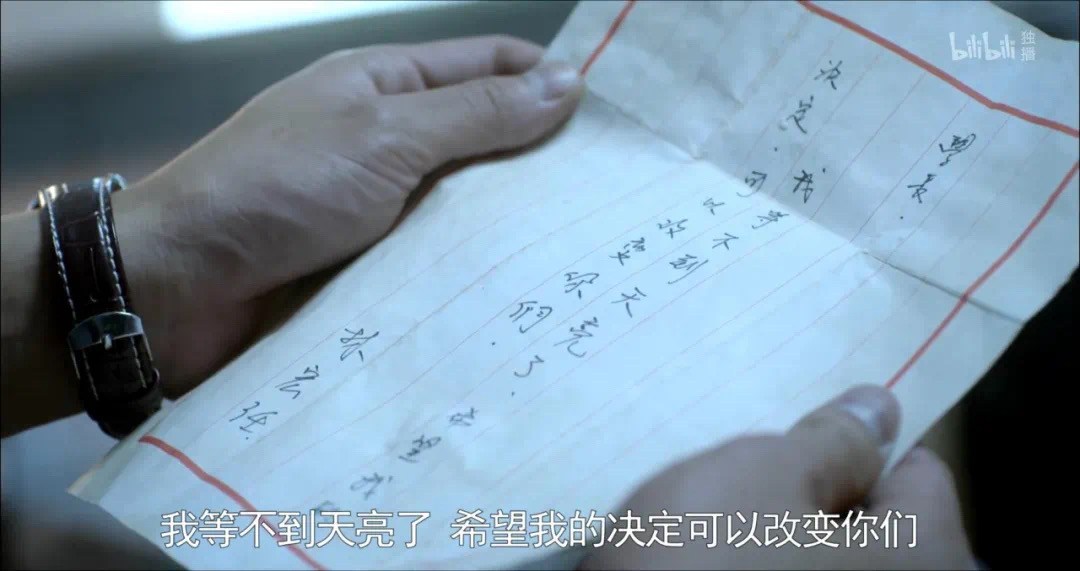 學長.
我等不到天亮了.希望我
决定可以改變你們.
林宏任.
bilibili 独播
我等不到天亮了 希望我的决定可以改变你们